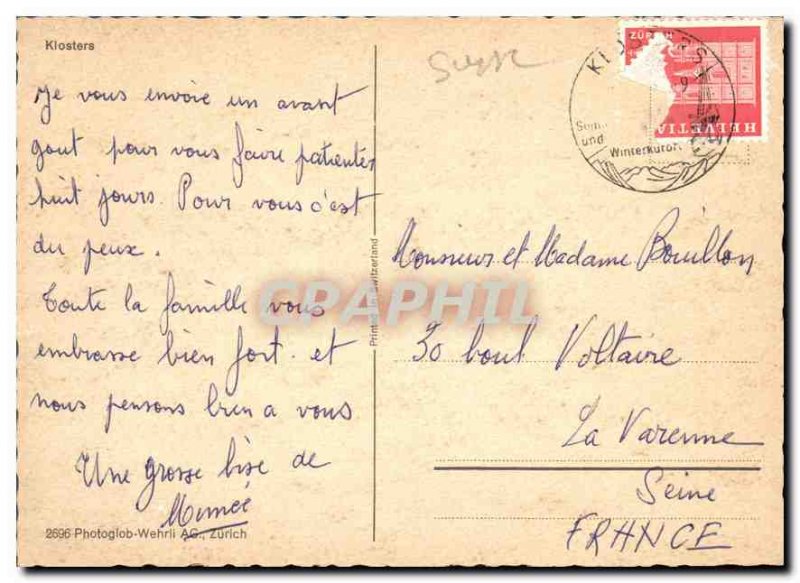 Klosters
Suisse
Je vous envoie un avant
gout pour vous faire patienter
huit jours. Pour vous c'est
du peux.
Toute la famille vous
embrasse bien fort. et
nous pensons bien a vous
Une grosse bise de
2696 Photoglob-Wehrli AG., Zürich
Printed in Switzerland
ZÜRICH
HELVETIA
KLOSTERS
9
und Winterkurort
Monsieur et Madame Bouillon
30 boul Voltaire
La Varenne
Seine
FRANCE
GRAPHIL